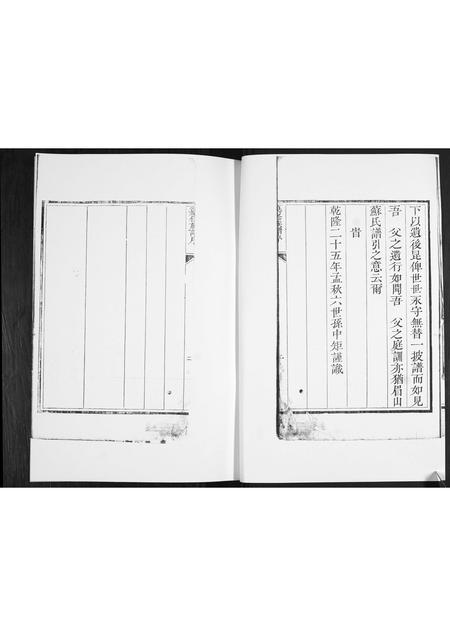 下以遺後昆俾世世永守無替一披譜而如見
吾　父之遺行如聞吾　父之庭訓亦猶眉山
蘇氏譜引之意云爾
旹
乾隆二十五年孟秋六世孫中矩謹識
二